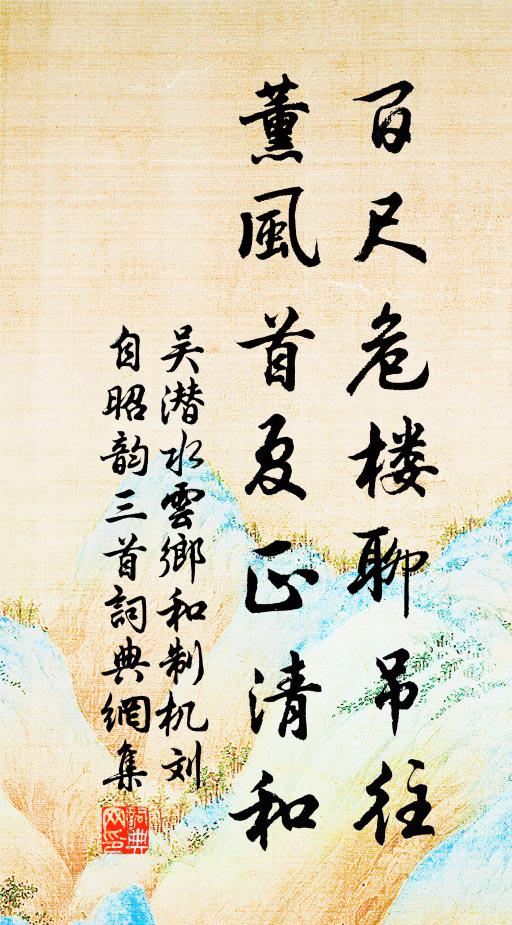 百尺危楼聊吊往
薰風首夏正清和
吴潜水雲鄉和制机刘
自昭韵三首詞典網集
詞典網印